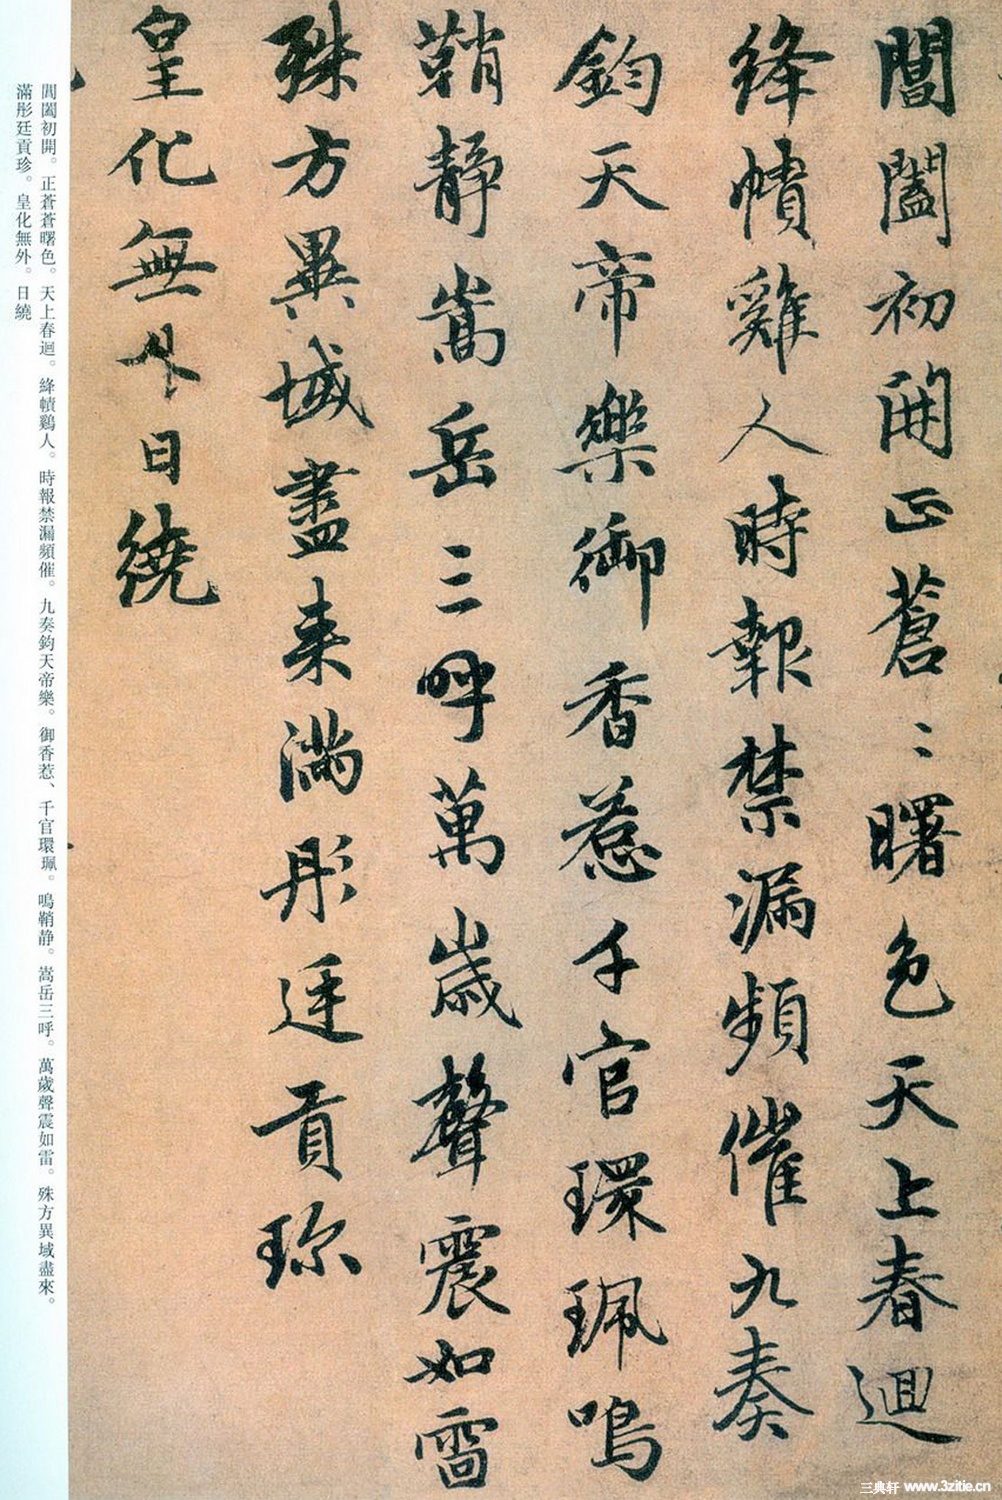 閶闔初開正蒼〻曙色天上春迴
絳幘雞人時報禁漏頻催九奏
鈞天帝樂御香惹千官環珮鳴
鞘靜嵩岳三呼萬歲聲震如雷
殊方異域盡来滿彤廷貢珎
皇化無外日繞
閶闔初開。正蒼蒼曙色。天上春迴。絳幘鷄人。時報禁漏頻催。九奏鈞天帝樂。御香惹、千官環珮。鳴鞘静。嵩岳三呼。萬歲聲震如雷。殊方異域盡來。
滿彤廷貢珍。皇化無外。日繞
三典轩 www.3zitie.cn